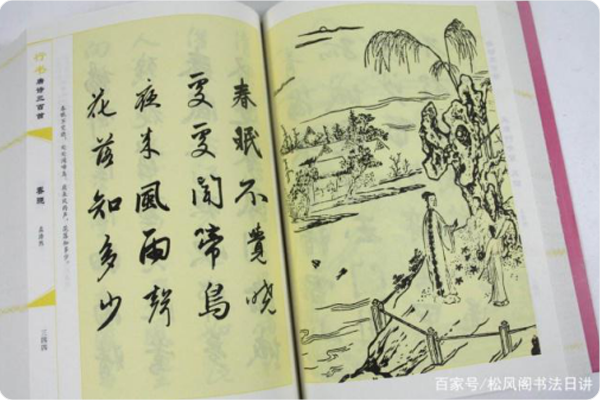 春眠不覺曉
處處聞啼鳥
夜来風雨聲
花落知多少
春眠不觉晓，处处闻啼鸟。夜来风雨声，花落知多少。
行书唐诗三百首
春晓
孟浩然
三四四
百家号/松风阁书法日讲